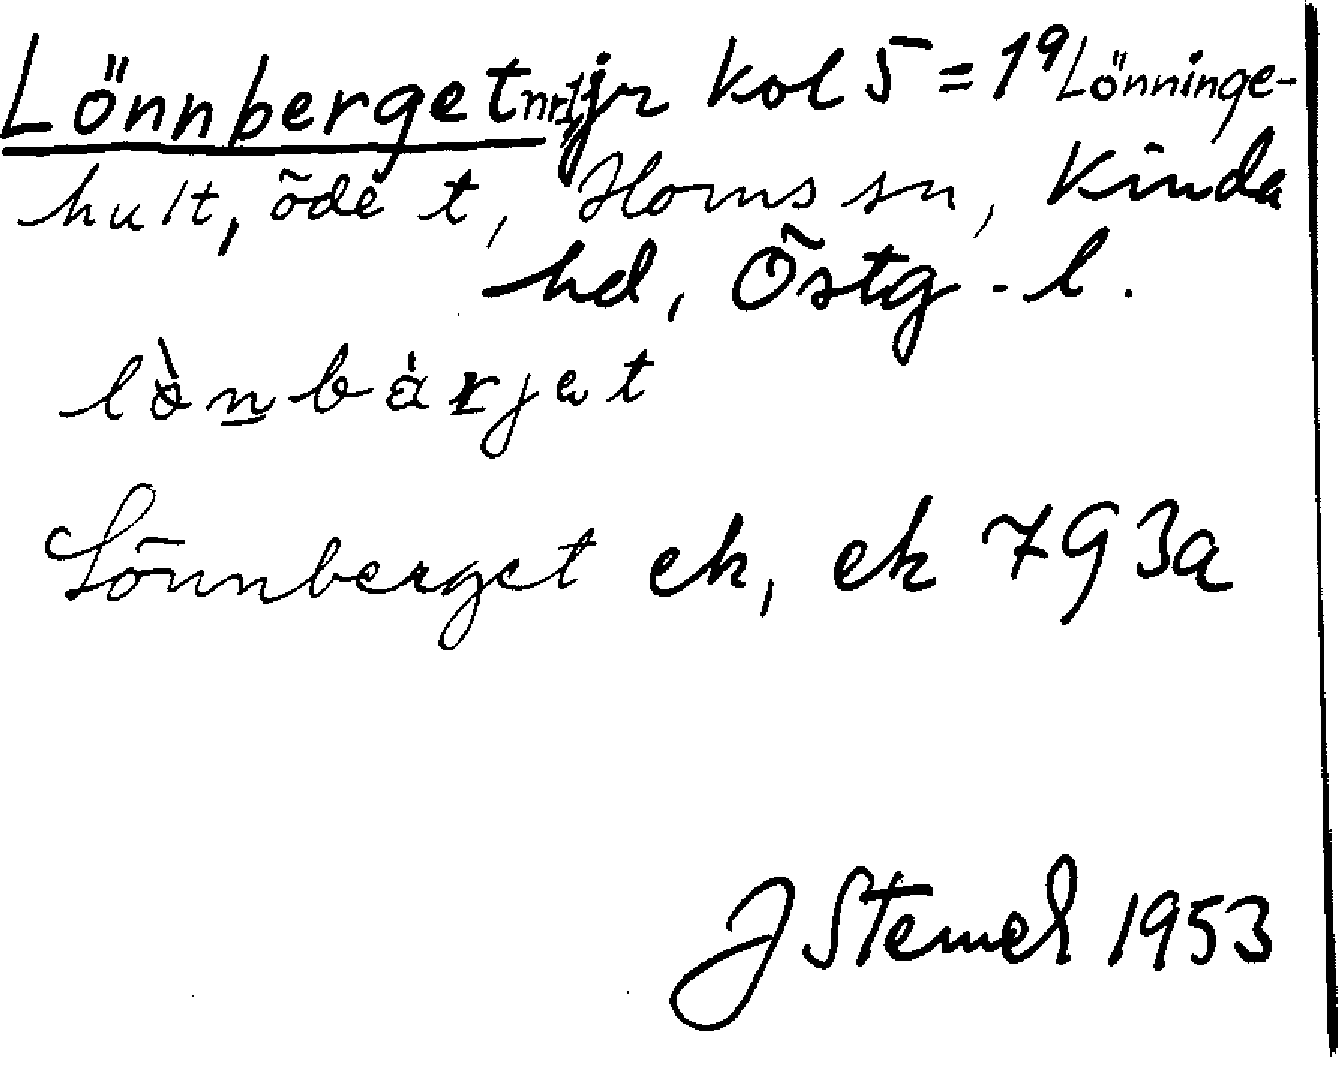 Lönnberget nr 1, jr kol 5 = 1⁹ Lönninge-
hult, öde t, Horns sn, Kinda
hd, Östg.l.
lò̀nbàrjet
Lönnberget ek, ek 793a
J Stemel 1953